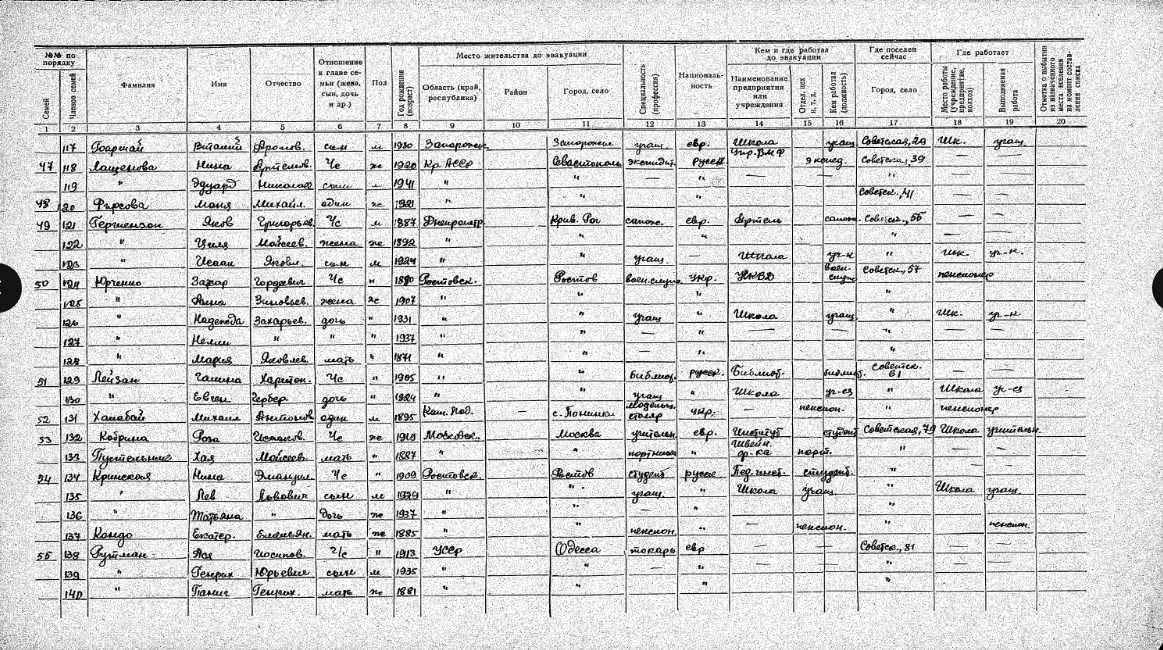 №№ по порядку
Семей
Членов семей
Фамилия
Имя
Отчество
Отношение к главе семьи (жена, сын, дочь и др.)
Пол
Год рождения (возраст)
Место жительства до эвакуации
Область (край, республика)
Район
Город, село
Специальность (профессия)
Националь-ность
Кем и где работал до эвакуации
Наименование предприятия или учреждения
Отдел, цех и т. д.
Кем работал (должность)
Где поселен сейчас
Город, село
Где работает
Место работы (учреждение, предприятие, колхоз)
Выполняемая работа
Отметка о выбытии из назначенного места вселения на момент составления списка
1 2 3 4 5 6 7 8 9 10 11 12 13 14 15 16 17 18 19 20
117 Виталий сын м 1930 Запорожск. Запорожье учащ. евр. Школа учащ. Советская, 29 Шк. учащ.
47 118 Лащенова Нина Артемов. Чс ж 1920 Кр. АССР Севастополь русск Упр. ВМФ Советск., 39 — —
119 " Эдуард Николаев сын м 1941 " " — " — — — " — —
48 120 Фирсова Мария Михайл. один ж 1921 " Советск. 41 — —
49 121 Гершензон Яков Григорьев. Чс м 1887 Днепропетр Крив. Рог сапож. евр. Артель сапож. Советск., 55 — —
122 " Циля Моисеев. жена ж 1892 " " — " — — " — —
123 " Исаак Яковл. сын м 1924 " " учащ. " Школа уч-к " Шк. уч-к.
50 124 Юрченко Захар Гордеевич Чс " 1880 Ростовск. Ростов воен.служ укр. НКВД воен. служ Советск, 57 пенсионер
125 " Анна Зиновьев. жена ж 1907 " " — " — — "
126 " Надежда Захарьев. дочь " 1931 " " учащ " Школа учащ. " Шк. уч-к
127 " Нелли " " " 1937 " " — " — — " — —
128 " Мария Яковлев. мать " 1871 " " — " — — " — —
51 129 Лейзан Галина Харитон. Чс " 1905 " " библиот. русск. Библиот. библиот. Советск. 61 — —
130 " Евген дочь " 1924 " " учащ " Школа уч-ся " Школа уч-ся
52 131 Ханабай Михаил Антонов один м 1895 Кам. Под. — с. Понинка модельн. столяр укр. — пенсион. " пенсионер
53 132 Кобрина Роза Исааков. Чс ж 1919 Московск. Москва учительн. евр. Институт студент Советская, 79 Школа учительн.
133 Пустельник Хая Моисеев. мать " 1887 " " портниха " Швейн. ф-ка порт. " — —
54 134 Кринская Нина Эмануил. Чс " 1909 Ростовск. Ростов студент. русск Пед. инст. студент. " — —
135 " Лев Львович сын м 1929 " " учащ. " Школа учащ. " Школа учащ.
136 " Татьяна " дочь ж 1937 " " — " — — " — —
137 Кондо Екатер. Емельян. мать ж 1885 " " пенсион " — пенсион. " пенсион
55 138 Гутман Ася Иосипов. Чс " 1913 УССР Одесса токарь евр Советск., 81 — —
139 " Генрих Юрьевич сын м 1935 " " — " — — " — —
140 " Генрих. мать ж 1881 " " " — — " — —